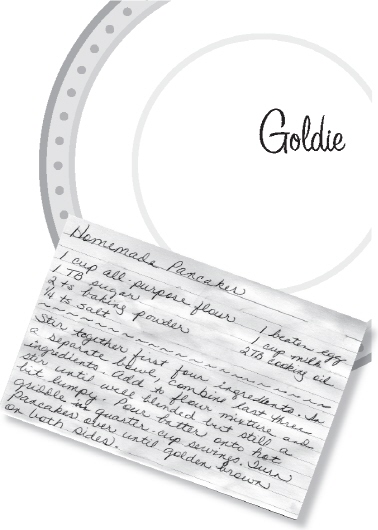 Goldie
Homemade Pancakes
1 cup all purpose flour
1 TB sugar 1 beaten egg
2 ts baking powder 1 cup milk
¼ ts salt 2 TB cooking oil
Stir together first four ingredients. In
a separate bowl, combine last three
ingredients. Add to flour mixture and
stir until well blended but still a
bit lumpy. Pour batter onto hot
griddle in quarter-cup servings. Turn
Pancakes over until golden brown
on both sides.